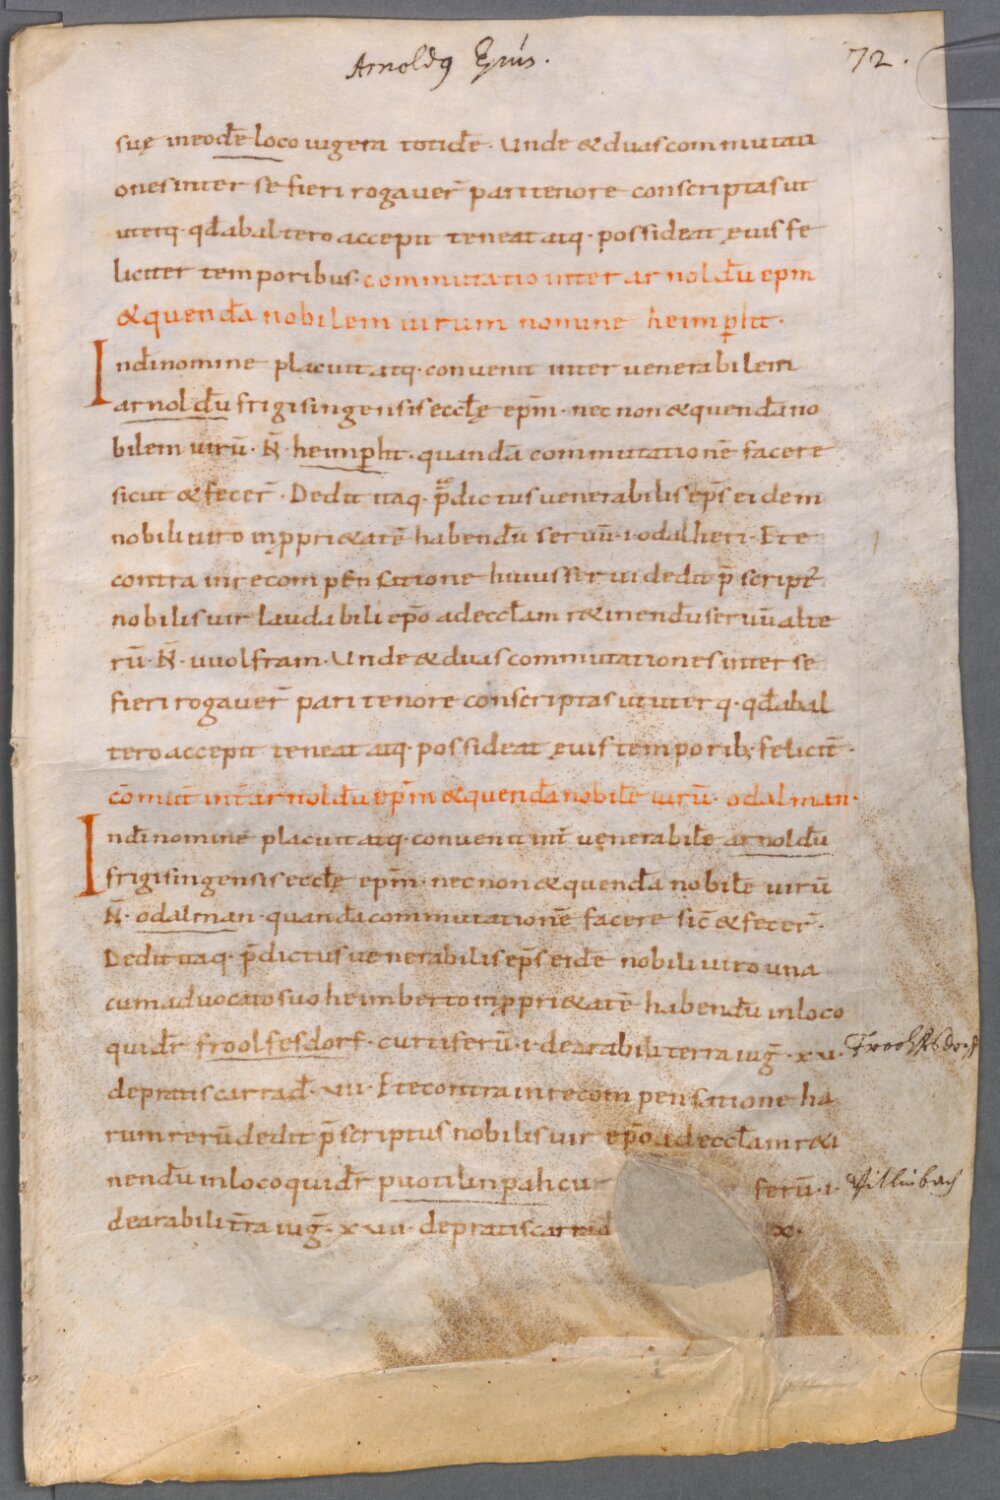 Arnoldꝰ Epius. 72.
suę ineodē loco iugera totidē · Unde &duascommutati
onesinter se fieri rogauer̄ paritenore conscriptasut
uterq· qd̄abaltero accepit teneat atq· possideat ęuisfe
liciter temporibus· commutatio inter arnoldū ep̄m
&quendā nobilem uirum nomine heimp̲ht·
Indīnomine placuit atq· conuenit inter uenerabilem
arnoldū frigisingensisecclę ep̄m · necnon &quendāno
bilem uirū · N̄ · heimp̲ht · quandā commutationē facere
sicut &fecer̄ · Dedit itaq· p̄dictusuenerabilisep̄s eidem
nobiliuiro inꝓpri&atē habendū seruū · i · odalheri · Ete
contra inrecompensatione huiusserui dedit p̄script᷒
nobilisuir laudabili ep̄o adeccl̄am r&inendūseruūalte
rū · N̄ · uuolfram · Unde &duascommutationesinter se
fieri rogauer̄ pari tenore conscriptas ututerq· qd̄abal
tero accepit teneat atq· possideat ęuistemporib; feliciī ·
cōmut̄ int̄ arnoldū ep̄m &quendā nobilē uirū · odalman ·
Indīnomine placuit atq· conuenit int̄ uenerabilē arnoldū
frigisingensisecclę ep̄m · necnon &quendā nobilē uirū
N̄ · odalman · quandācommutationē facere sic̄ &fecer̄ ·
Dedit itaq· p̄dictusuenerabilisep̄s eidē nobiliuiro una
cumaduocatosuo heimberto inꝓpri&atē habendū inloco
quidr̄ froolfesdorf · curtiferū · i · dearabiliterra iuḡ · xv · Froolfsdorff
depratiscarrad̄ · vii · Etecontra inrecompensatione ha
rumrerūdedit p̄scriptus nobilisuir ep̄o adeccl̄amr&i
nendū inlocoquidr̄ puotilinpahcur ferū · i · Pitlinbach
dearabilit̄ra iuḡ · xvii · depratiscarrad x ·